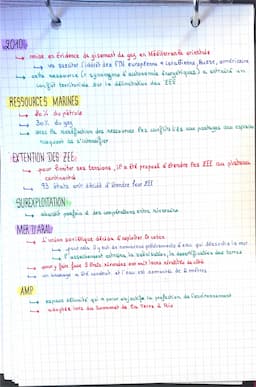 ↳ mise en évidence de gisement de gaz en Méditerranée orientale
↳ va susciter l'intérêt des FTN européenne + israélienne, Russe, américaine
↳ cette ressource (= synonyme d'autonomie énergétique) a entraîné un
conflit territoriale sur la délimitation des ZEE
RESSOURCES MARINES
↳ 20% du pétrole
↳ 30% du gaz
↳ avec la raréfaction des ressources les conflits liés aux partages des espaces
risquent de s'intensifier
EXTENTION DES ZEE
↳ pour limiter ses tensions, il a été proposé d'étendre les ZEE au plateau
continental
↳ 93 états ont décidé d'étendre leur ZEE
SUREXPLOITATION
↳ aboutit parfois à des coopérations entre riverains
MER D'ARAL
↳ L'union soviétique décide d'exploiter le coton
↳ pour cela il y eut de nombreux prélèvements d'eau qui assécha la mer
↳ l'assèchement entraîne la salinisation, la désertification des terres
↳ pour y faire face 2 états riverains ont mis leurs rivalités de côté
↳ un barrage a été construit et l'eau est remonté de 2 mètres
AMP
↳ espace délimité qui a pour objectif la protection de l'environnement
↳ adoptée lors du Sommet de la Terre à Rio